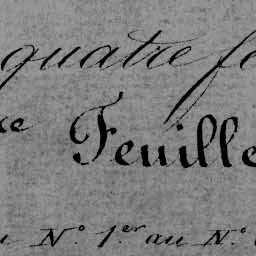 quatre
Feuille
N.° 1.er au N.°